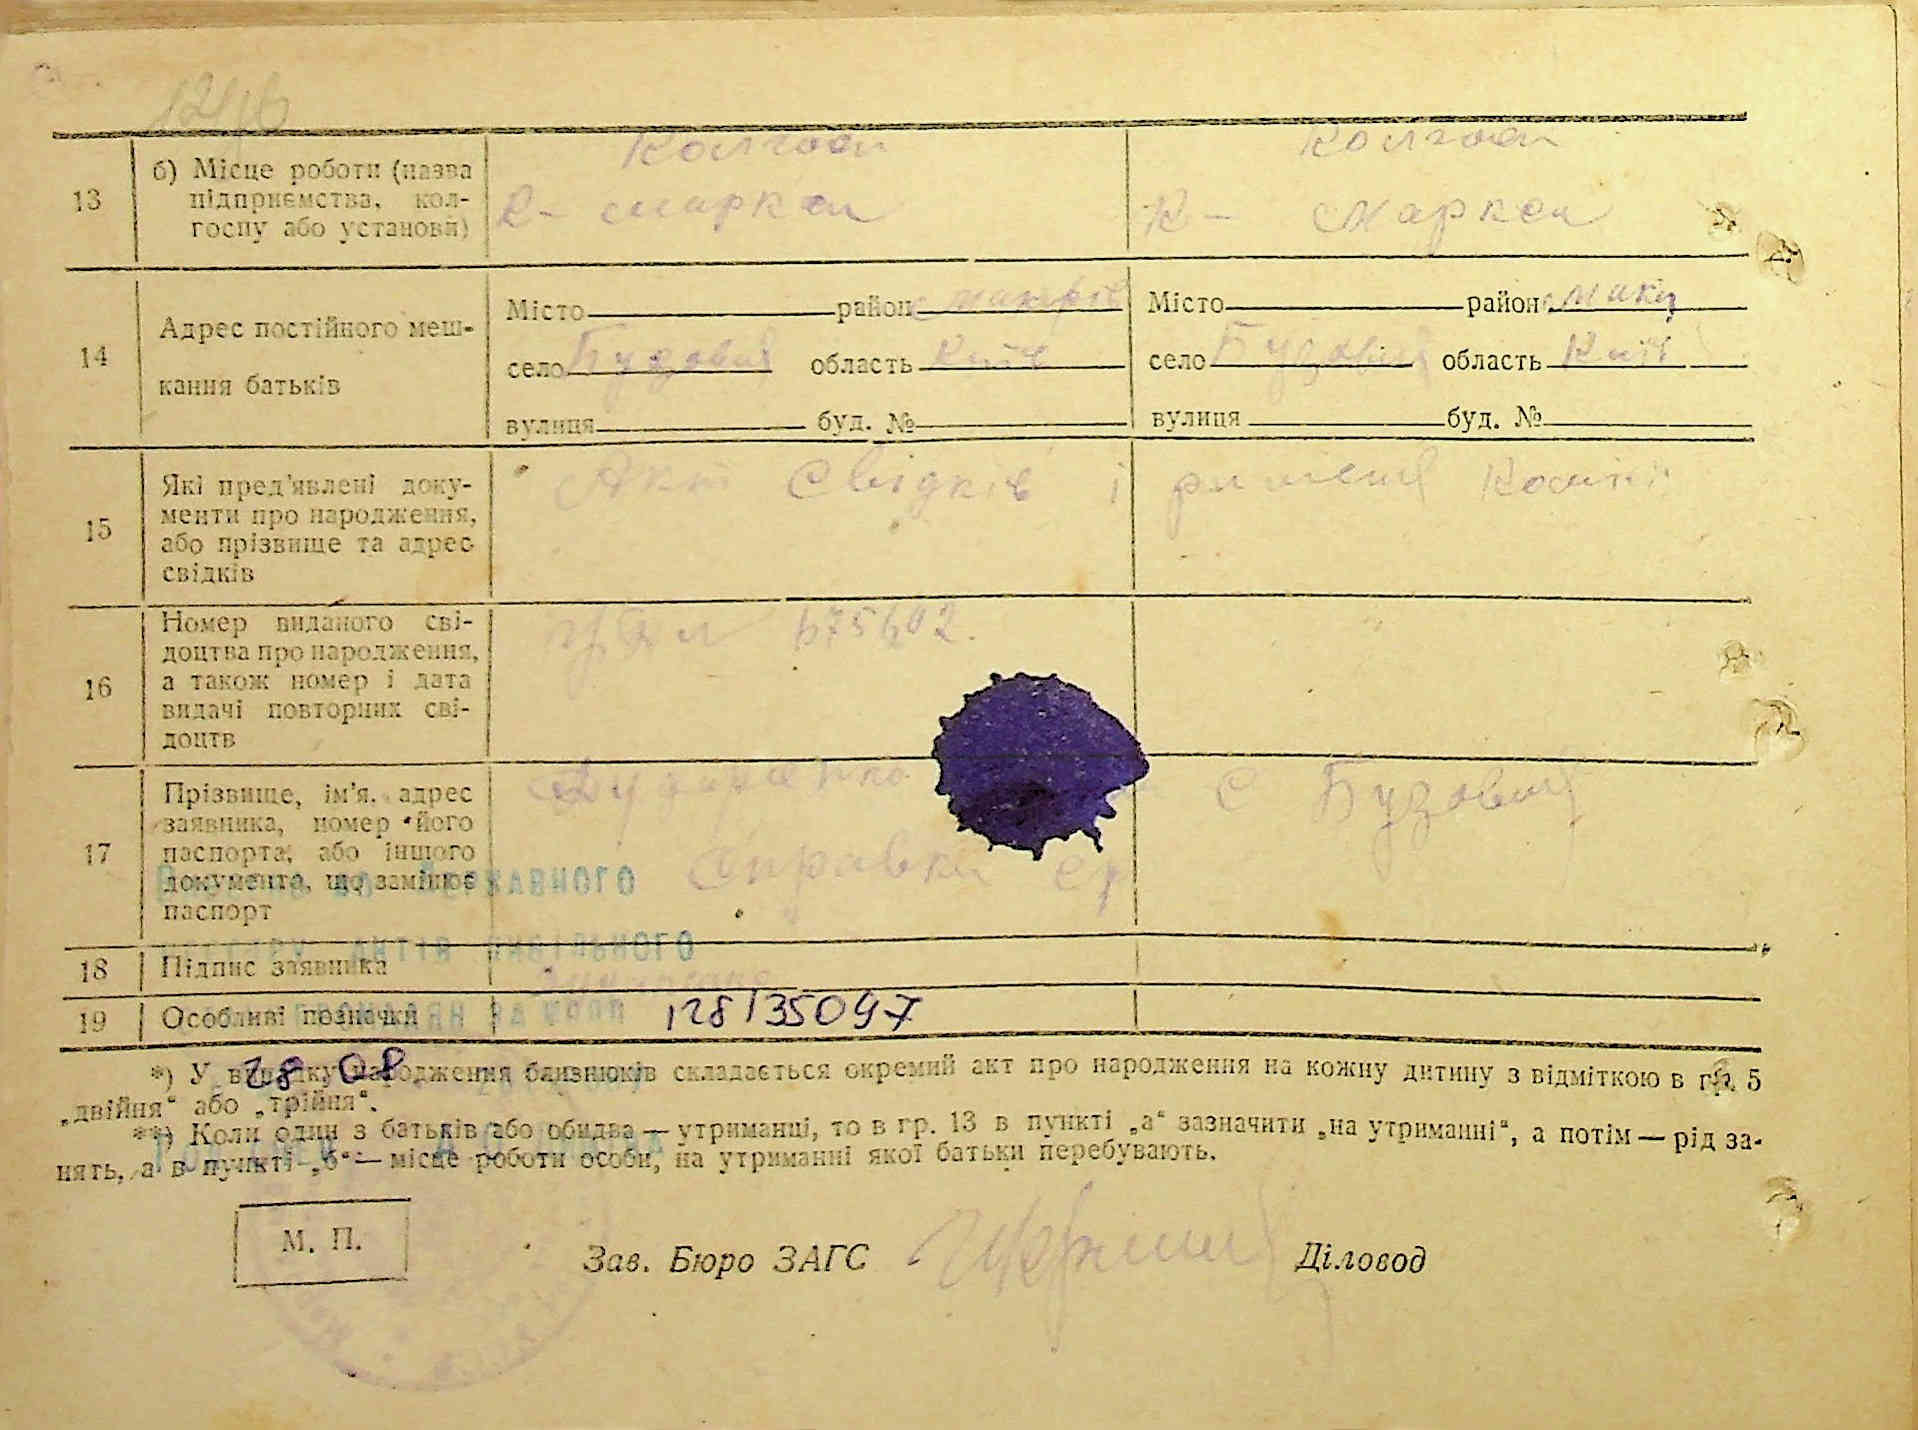 13
б) Місце роботи (назва
підприємства, кол-
госпу або установи)
Колгосп
К-маркса
Колгосп
К- маркса
14
Адрес постійного меш-
кання батьків
Місто район макарів
село Бузова область Київ
вулиця буд. №
Місто район мака
село Бузова область Київ
вулиця буд. №
15
Які пред'явлені доку-
менти про народження,
або прізвище та адрес
свідків
Акт Свідків і
16
Номер виданого сві-
доцтва про народження,
а також номер і дата
видачі повторних сві-
доцтв
17
Прізвище, ім'я, адрес
заявника, номер його
паспорта, або іншого
документа, що замінює
паспорт
с Бузова
Справка
18
Підпис заявника
19
Особливі позначки
128135097
28 08
*) У випадку народження близнюків складається окремий акт про народження на кожну дитину з відміткою в гр. 5
„двійня“ або „трійня“.
**) Коли один з батьків або обидва — утриманці, то в гр. 13 в пункті „а“ зазначити „на утриманні“, а потім — рід за-
нять, а в пункті „б“ — місце роботи особи, на утриманні якої батьки перебувають.
М. П.
Зав. Бюро ЗАГС
Діловод